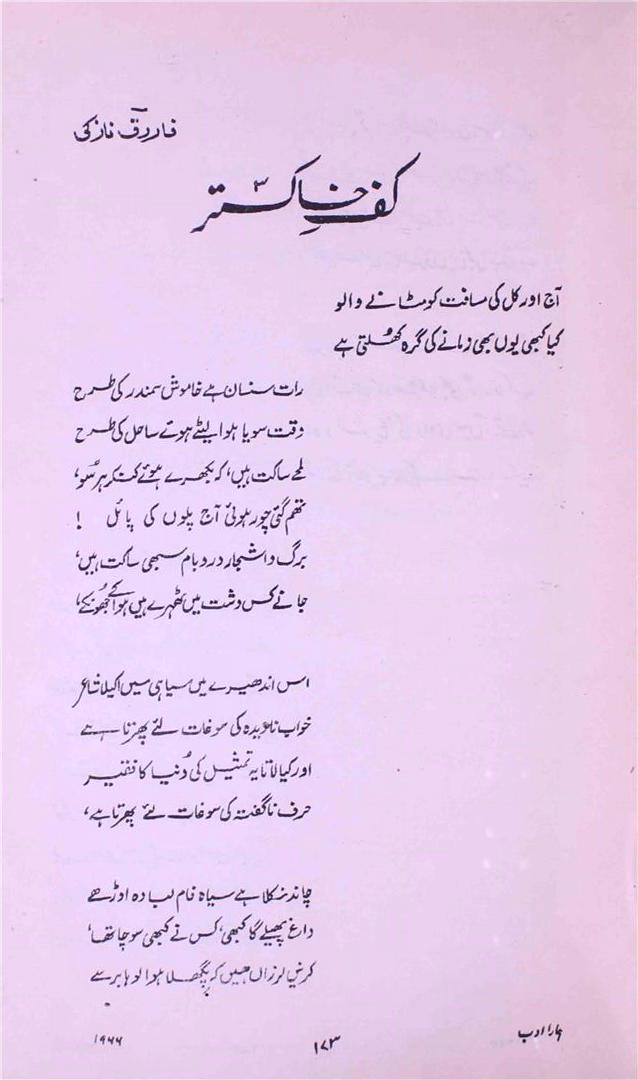 فاروق نازکی
کفِ خاکستر
آج اور کل کی مسافت کو مٹانے والو
کیا کبھی یوں بھی زمانے کی گرہ کھُلتی ہے
رات سنسان ہے خاموش سمندر کی طرح
وقت سویا ہوا لیٹے ہوئے ساحل کی طرح
لمحے ساکت ہیں، کہ بکھرے ہوئے کنکر ہر سُو،
تھم گئی چور ہوئی آج پلوں کی پائل !
برگ و اشجار در و بام سبھی ساکت ہیں،
جانے کس دشت میں ٹھہرے ہیں ہوا کے جھونکے،
اس اندھیرے میں سیاہی میں اکیلا شاعر
خواب نادیدہ کی سوغات لئے پھرتا ہے
اور کیا لاتا یہ تمثیل کی دُنیا کا فقیر
حرف ناگفتہ کی سوغات لئے پھرتا ہے،
چاند نکلا ہے سیاہ فام لبادہ اوڑھے
داغ پھیلے گا کبھی، کس نے کبھی سوچا تھا،
کرنیں لرزاں ہیں کہ پگھلا ہوا لوہا برسے
ہمارا ادب
۱۷۳
۱۹۶۶